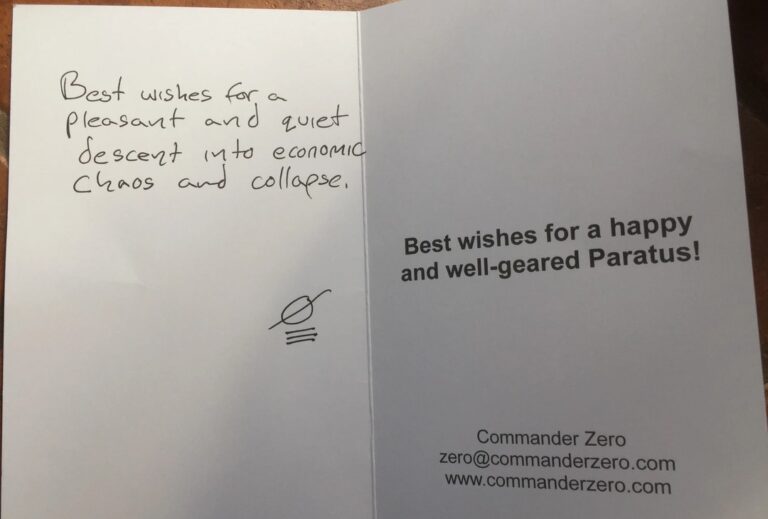 Best wishes for a
pleasant and quiet
descent into economic
chaos and collapse.
Best wishes for a happy
and well-geared Paratus!
Commander Zero
zero@commanderzero.com
www.commanderzero.com